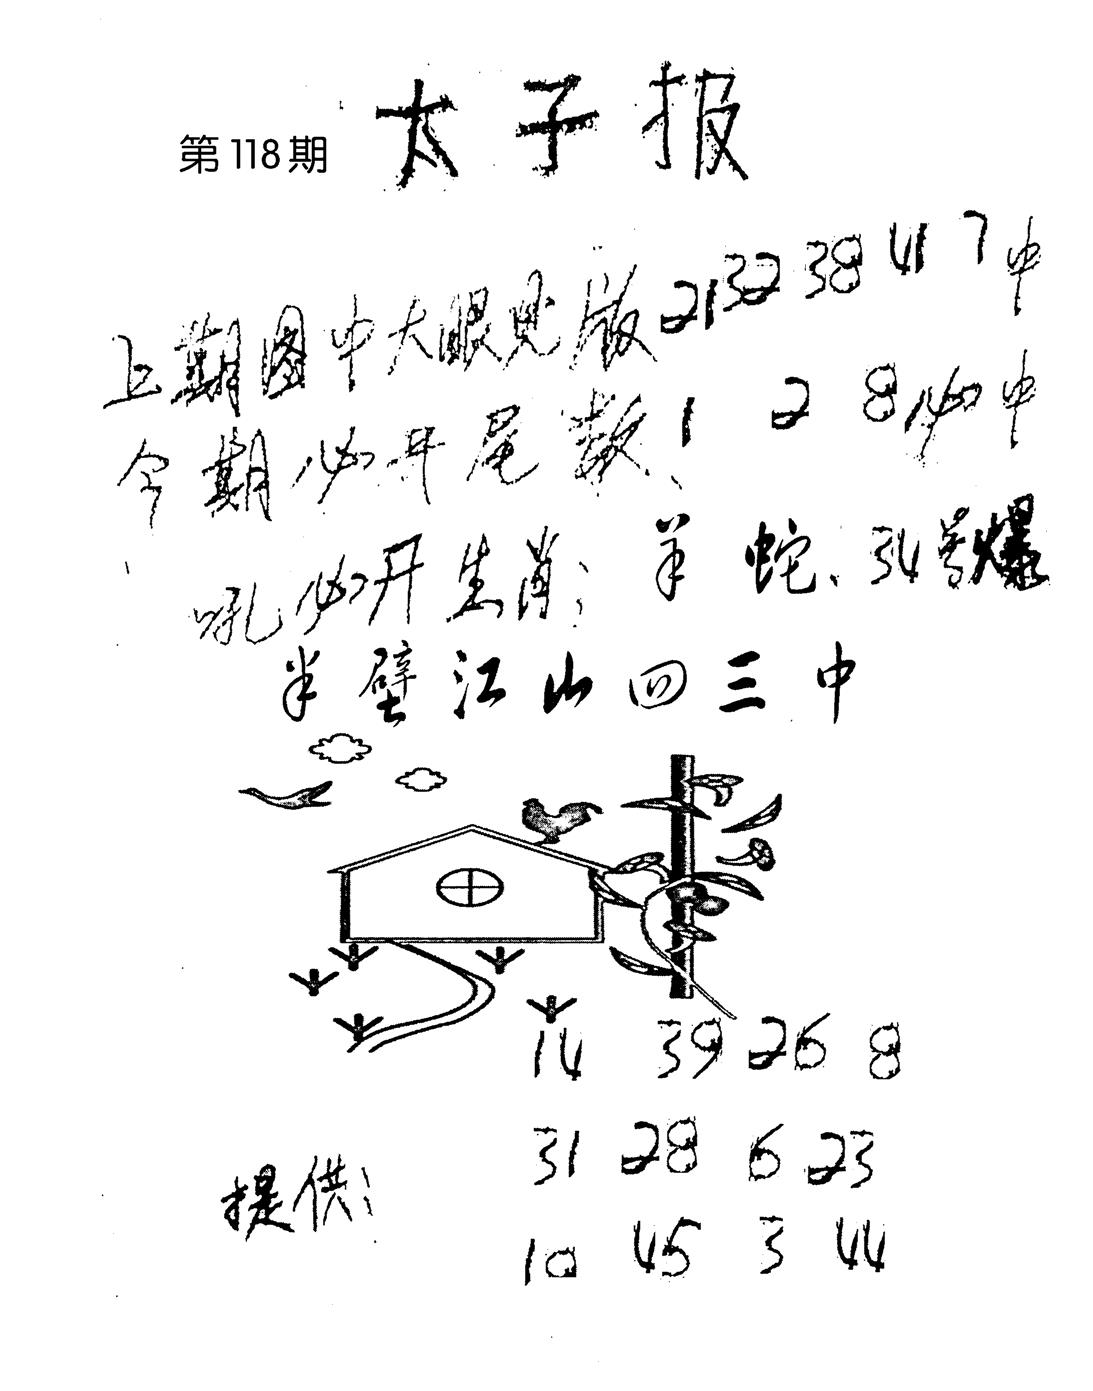 第118期 太子报
上期图中大眼见版 21 32 38 41 7中
今期必开尾数、1 2 8必中
吼必开生肖: 羊 蛇、34号爆
半壁江山四三中
14 39 26 8
31 28 6 23
提供:
10 45 3 44